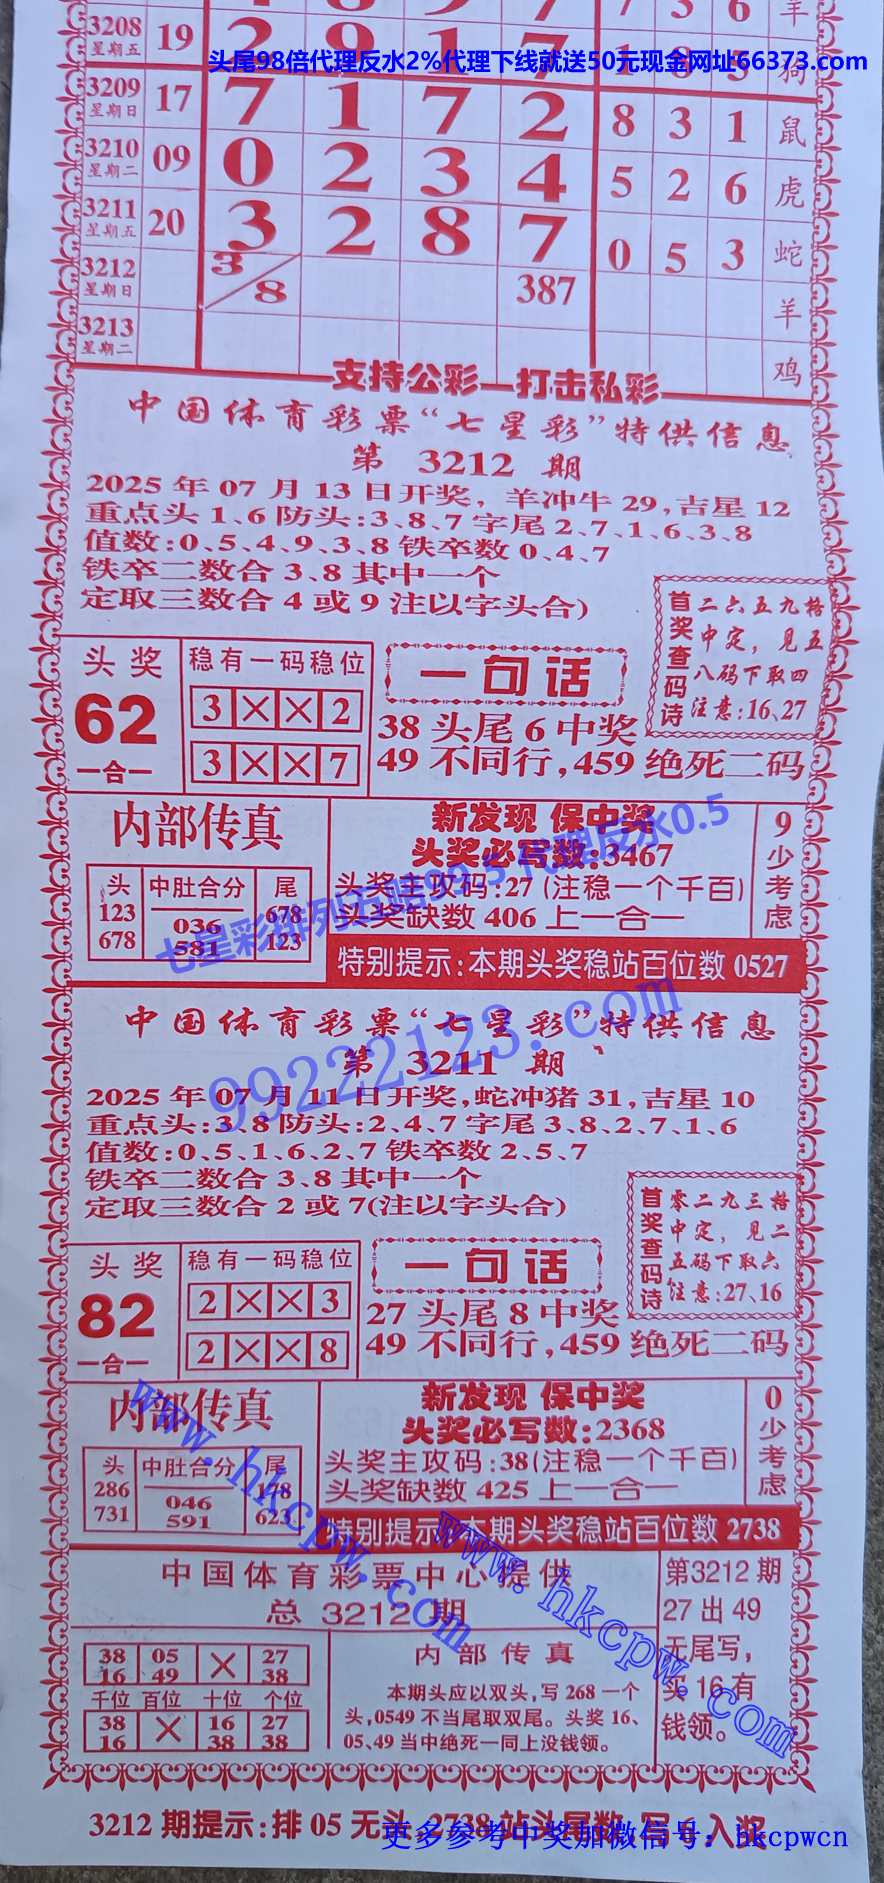 7 3 6 羊
3208 星期五 19 2 9 1 7 1 8 5 狗
头尾98倍代理反水2%代理下线就送50元现金网址66373.com
3209 星期日 17 7 1 7 2 8 3 1 鼠
3210 星期二 09 0 2 3 4 5 2 6 虎
3211 星期五 20 3 2 8 7 0 5 3 蛇
3212 星期日 3/8 387 羊
3213 星期二 鸡
支持公彩—打击私彩
中国体育彩票“七星彩”特供信息
第 3212 期
2025 年 07 月 13 日开奖，羊冲牛 29，吉星 12
重点头 1、6 防头:3、8、7 字尾 2、7、1、6、3、8
值数:0、5、4、9、3、8 铁卒数 0、4、7
铁卒二数合 3、8 其中一个
定取三数合 4 或 9 注以字头合)
首奖查码诗
二六五九格
中定，见五
八码下取四
注意:16、27
头奖
62
一合一
稳有一码稳位
3 × × 2
3 × × 7
一句话
38 头尾 6 中奖
49 不同行，459 绝死二码
内部传真
头 中肚合分 尾
123 036 678
678 581 123
新发现 保中奖
头奖必写数:3467
头奖主攻码:27 (注稳一个千百)
头奖缺数 406 上一合一
9少考虑
特别提示:本期头奖稳站百位数 0527
七星彩排列五赔99.5 代理反水0.5
中国体育彩票“七星彩”特供信息
第 3211 期
99222123.com
2025 年 07 月 11 日开奖，蛇冲猪 31，吉星 10
重点头:3、8 防头:2、4、7 字尾 3、8、2、7、1、6
值数:0、5、1、6、2、7 铁卒数 2、5、7
铁卒二数合 3、8 其中一个
定取三数合 2 或 7(注以字头合)
首奖查码诗
零二九三格
中定，见二
五码下取六
注意:27、16
头奖
82
一合一
稳有一码稳位
2 × × 3
2 × × 8
一句话
27 头尾 8 中奖
49 不同行，459 绝死二码
内部传真
头 中肚合分 尾
286 046 178
731 591 623
新发现 保中奖
头奖必写数:2368
头奖主攻码:38(注稳一个千百)
头奖缺数 425 上一合一
0少考虑
特别提示:本期头奖稳站百位数 2738
www.hkcpw.com
www.hkcpw.com
中国体育彩票中心提供
总 3212 期
38 05 × 27
16 49 38
千位 百位 十位 个位
38 × 16 27
16 38 38
内部传真
本期头应以双头，写 268 一个
头，0549 不当尾取双尾。头奖 16、
05、49 当中绝死一同上没钱领。
第3212 期
27 出 49
无尾写，
买 16 有
钱领。
3212 期提示:排 05 无头，2738 站头尾数，写 6 入奖
更多参考中奖加微信号：hkcpwcn